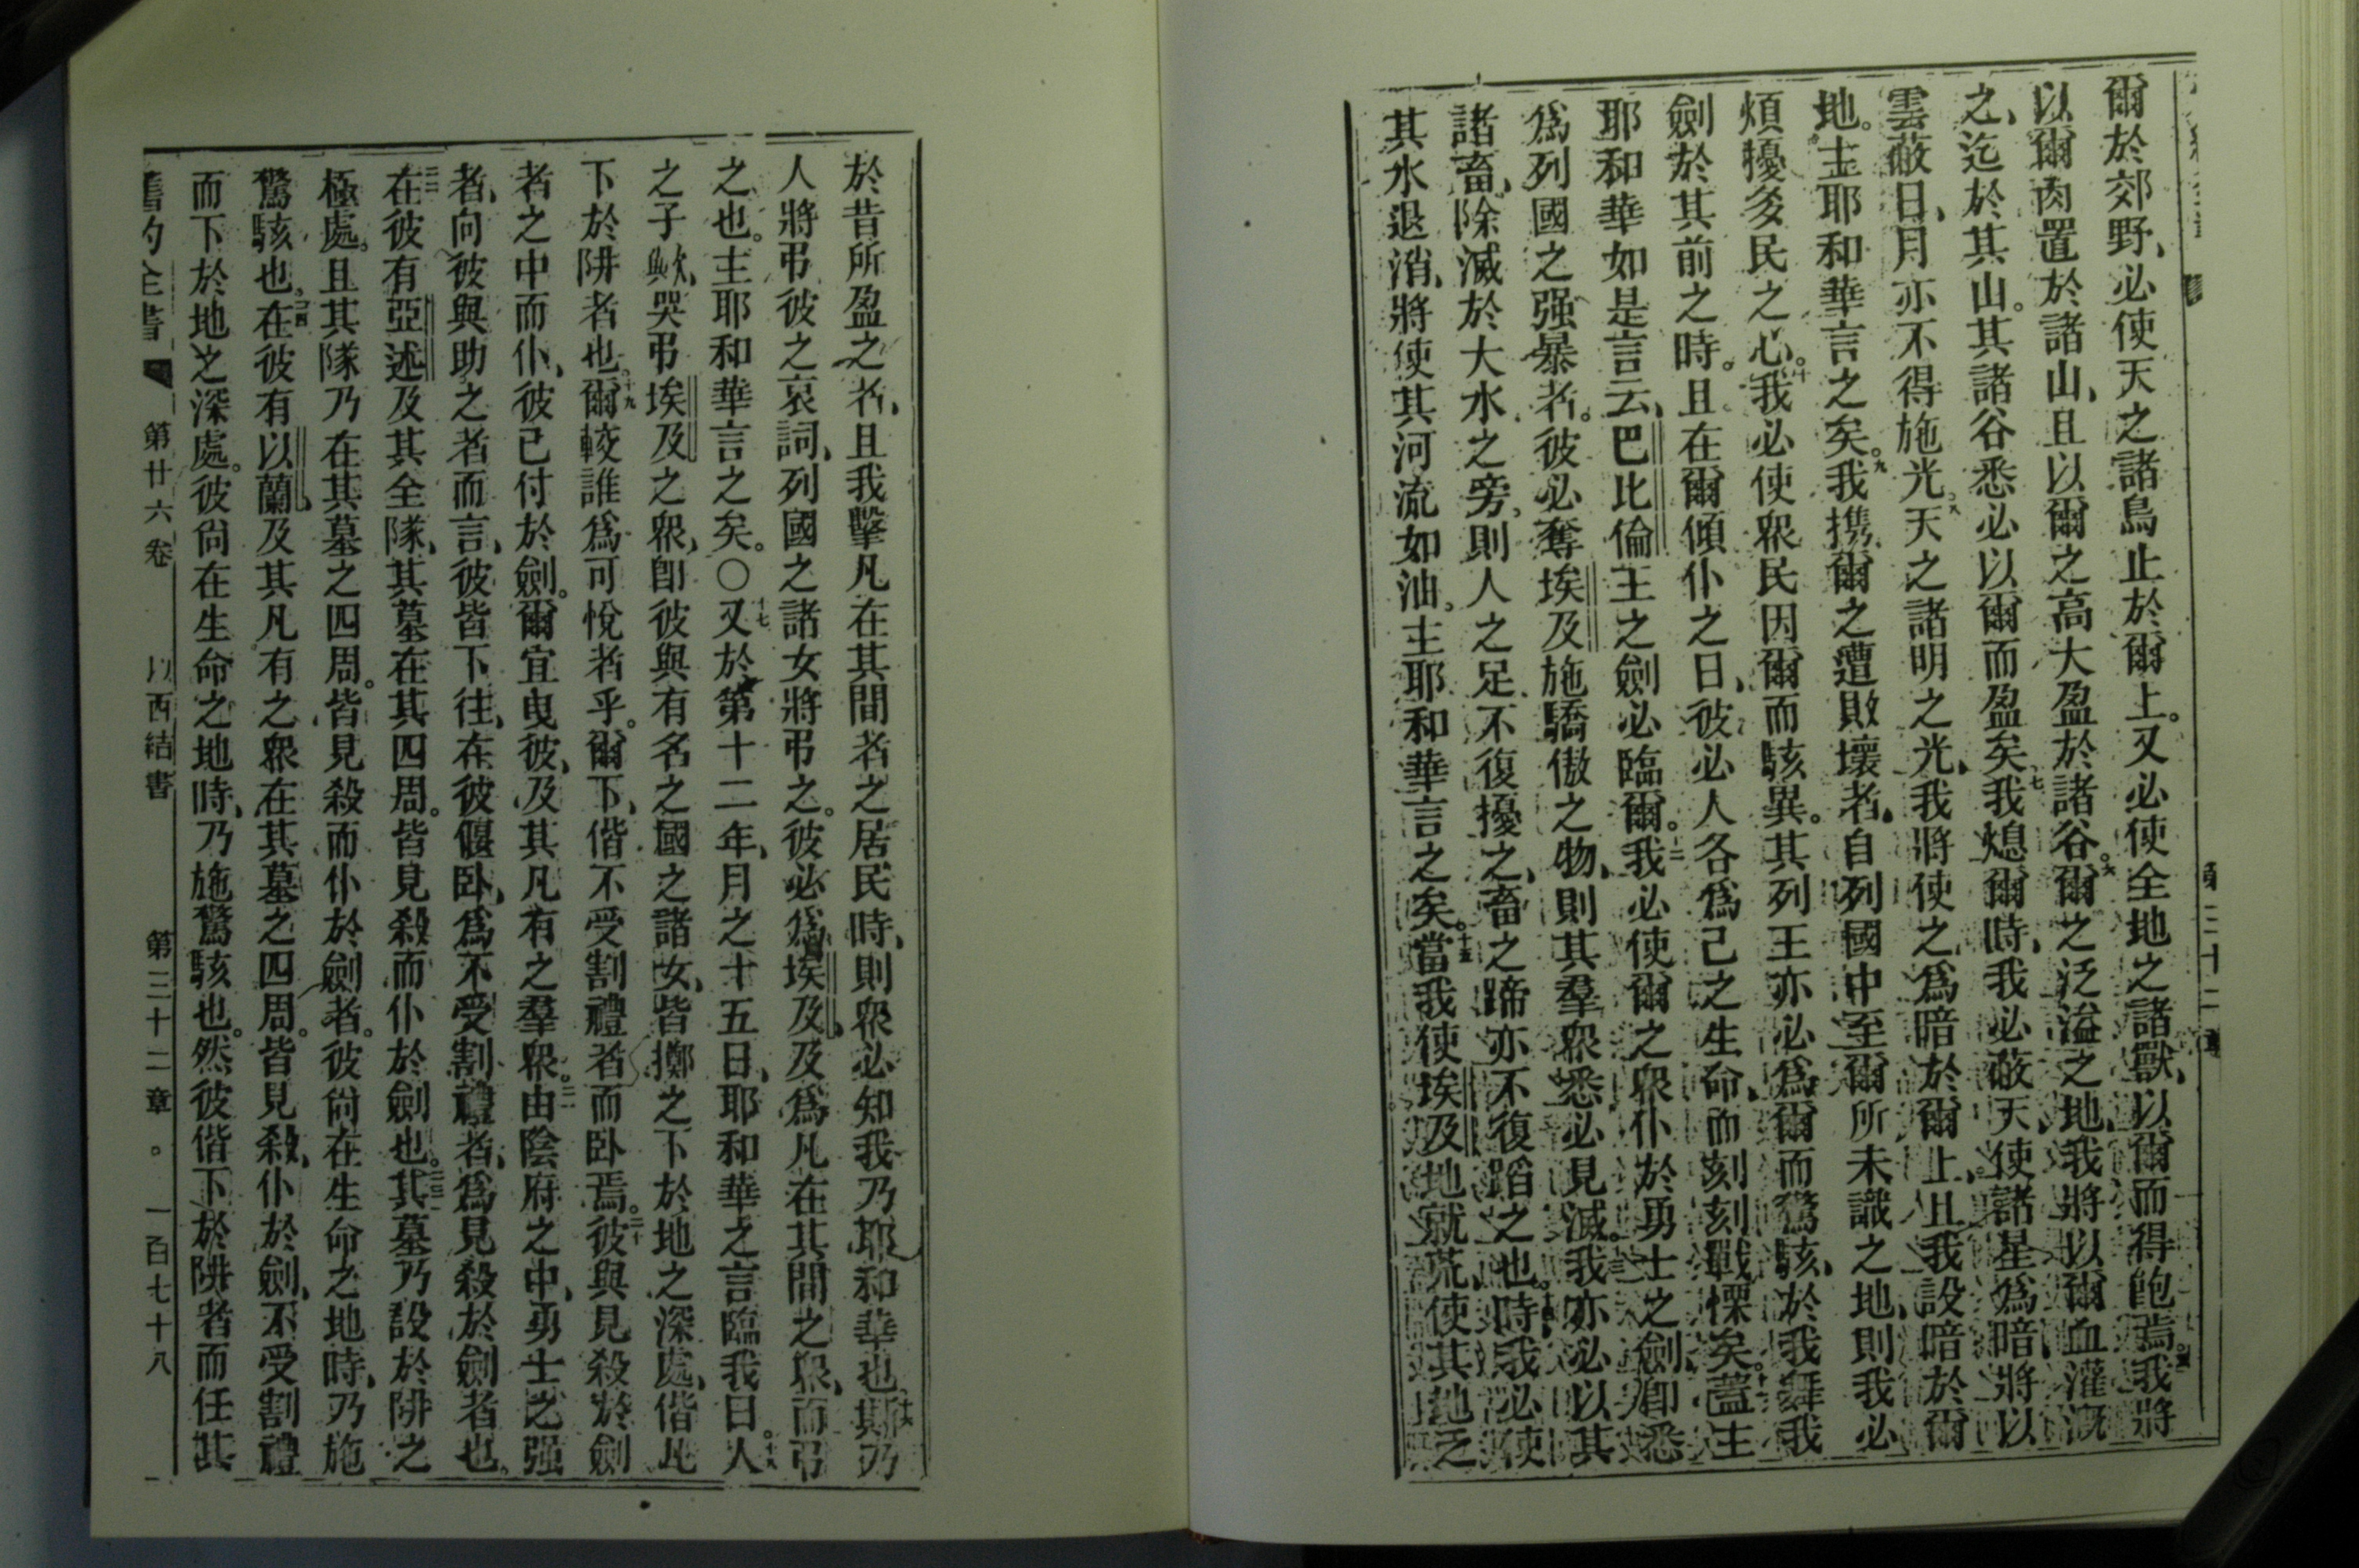 爾於郊野、必使天之諸鳥止於爾上。又必使全地之諸獸、以爾而得飽焉。我將
以爾肉置於諸山、且以爾之高大盈於諸谷。六爾之泛溢之地、我將以爾血灌溉
之、迄於其山。其諸谷悉必以爾而盈矣。七我熄爾時、我必蔽天、使諸星爲暗、將以
雲蔽日、月亦不得施光。八天之諸明之光、我將使之爲暗於爾上、且我設暗於爾
地。主耶和華言之矣。九我携爾之遭敗壞者、自列國中至爾所未識之地、則我必
煩擾多民之心。十我必使眾民因爾而駭異。其列王亦必爲爾而驚駭、於我舞我
劍於其前之時。且在爾傾仆之日、彼必人各爲己之生命、而刻刻戰慄矣。十一蓋主
耶和華如是言云、巴比倫王之劍必臨爾。十二我必使爾之眾仆於勇士之劍、卽悉
爲列國之强暴者。彼必奪埃及施驕傲之物、則其羣眾悉必見滅。十三我亦必以其
諸畜、除滅於大水之旁、則人之足不復擾之、畜之蹄亦不復蹈之也。十四時我必使
其水退消、將使其河流如油。主耶和華言之矣。十五當我使埃及地就荒、使其地乏
第三十二章
於昔所盈之者、且我擊凡在其間者之居民時、則眾必知我乃耶和華也。十六斯乃
人將弔彼之哀詞、列國之諸女將弔之。彼必爲埃及、及爲凡在其間之眾、而弔
之也。主耶和華言之矣。〇十七又於第十二年、月之十五日、耶和華之言臨我曰。十八人
之子歟、哭弔埃及之眾、卽彼與有名之國之諸女、皆擲之下於地之深處、偕此
下於阱者也。十九爾較誰爲可悅者乎。爾下、偕不受割禮者而卧焉。二十彼與見殺於劍
者之中而仆、彼已付於劍。爾宜曳彼、及其凡有之羣眾。二一由陰府之中、勇士之强
者、向彼與助之者而言、彼皆下往、在彼偃卧、爲不受割禮者、爲見殺於劍者也。
二二在彼有亞述及其全隊、其墓在其四周。皆見殺而仆於劍也。二三其墓乃設於阱之
極處。且其隊乃在其墓之四周。皆見殺而仆於劍者。彼尙在生命之地時、乃施
驚駭也。二四在彼有以蘭及其凡有之眾在其墓之四周。皆見殺、仆於劍、不受割禮
而下於地之深處。彼尙在生命之地時、乃施驚駭也。然彼偕下於阱者而任其
舊約全書 第廿六卷 以西結書 第三十二章。一百七十八